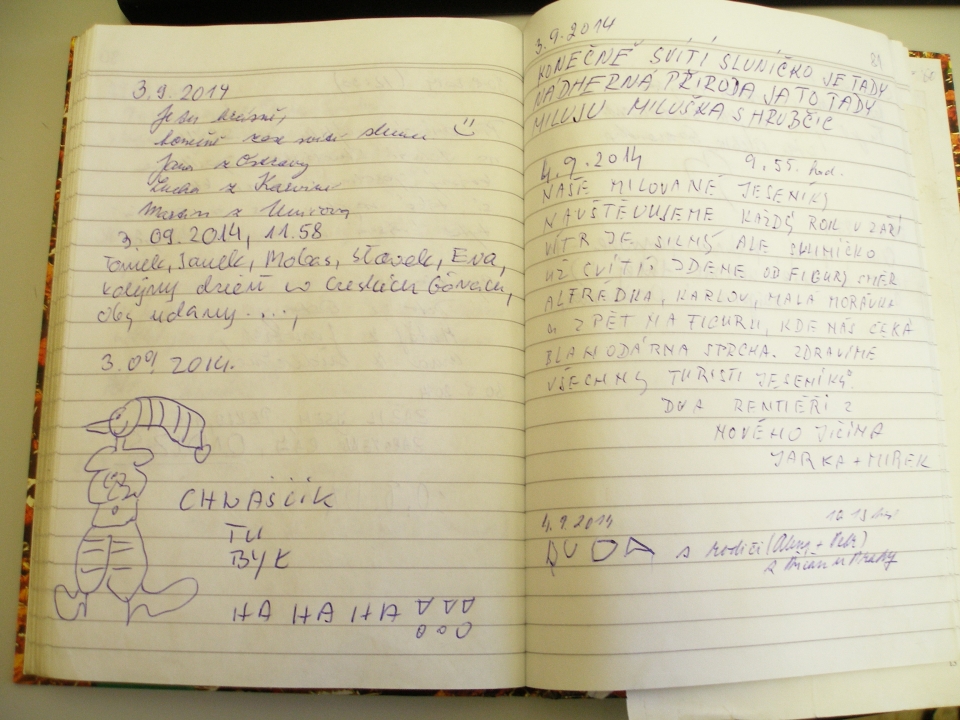 3.9.2014
Je tu krásně,
konečně zase svítí slunce
Jana z Ostravy
Lucka z Karviné
3.09.2014, 11.58
Tomek, Janek, Mobas, Sławek, Ewa,
kolejny dzień w Czeskich Górach,
oby udany ....,
3.09 2014.
CHWAŚCIK
TU
BYŁ
HA HA HA
3.9.2014
81
KONEČNĚ SVÍTÍ SLUNÍČKO JE TADY
NÁDHERNÁ PŘÍRODA JA TO TADY
MILUJU MILUŠKA S HRUBČIC
4.9.2014 9.55. hod.
NAŠE MILOVANÉ JESENÍKY
NAVŠTĚVUJEME KAŽDÝ ROK V ZÁŘÍ
VÍTR JE SILNÝ ALE SLUNÍČKO
UŽ SVÍTÍ. JDEME OD FIGURY SMĚR
ALFRÉDKA, KARLOV, MALÁ MORÁVKA
a ZPĚT NA FIGURU, KDE NÁS ČEKÁ
BLAHODÁRNÁ SPRCHA. ZDRAVÍME
VŠECHNY TURISTY JESENÍKŮ.
DVA RENTIÉŘI Z
NOVÉHO JIČÍNA
JARKA + MIREK
4.9.2014
DUDA s rodiči
z Říčan u Prahy